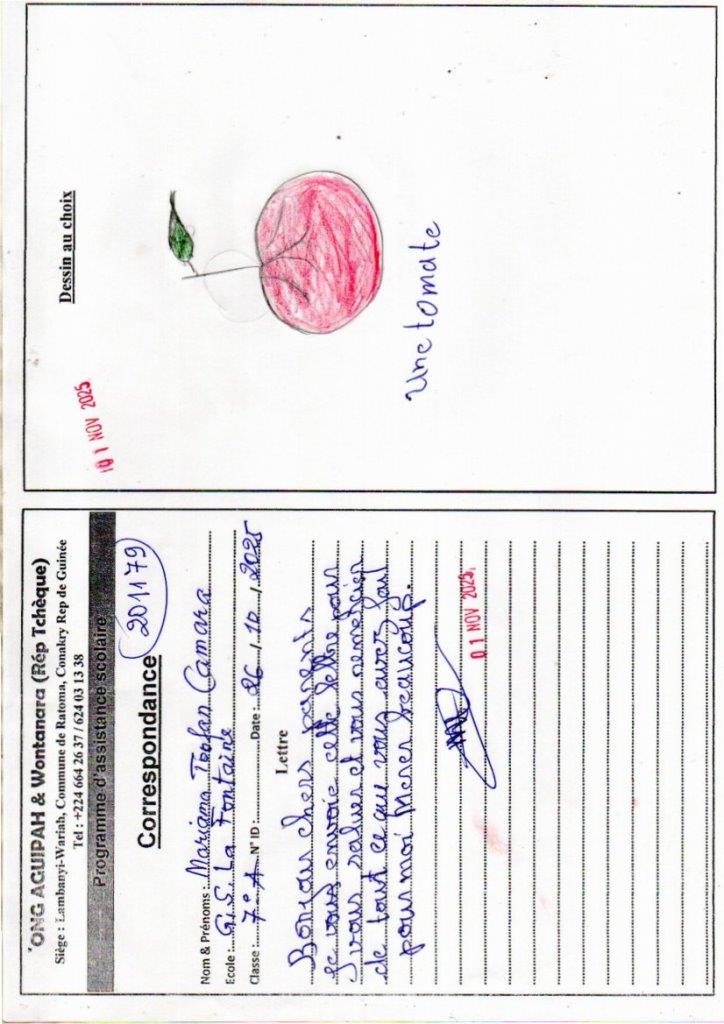 ONG AGUIPAH & Wontanara (Rép Tchèque)
Siège : Lambanyi-Wariah, Commune de Ratoma, Conakry Rep de Guinée
Tel : +224 664 26 37 / 624 03 13 38
Programme d'assistance scolaire
Correspondance
201179
Nom & Prénoms : Mariama Camara
Ecole : G.S. La Fontaine
Classe : 7e A N° ID : Date : 26 / 10 / 2025
Lettre
Bonjour chers parents
je vous envoie cette lettre pour
vous saluer et vous remercier
de tout ce que vous avez fait
pour moi Merci beaucoup.
01 NOV 2025
01 NOV 2025
Dessin au choix
Une tomate